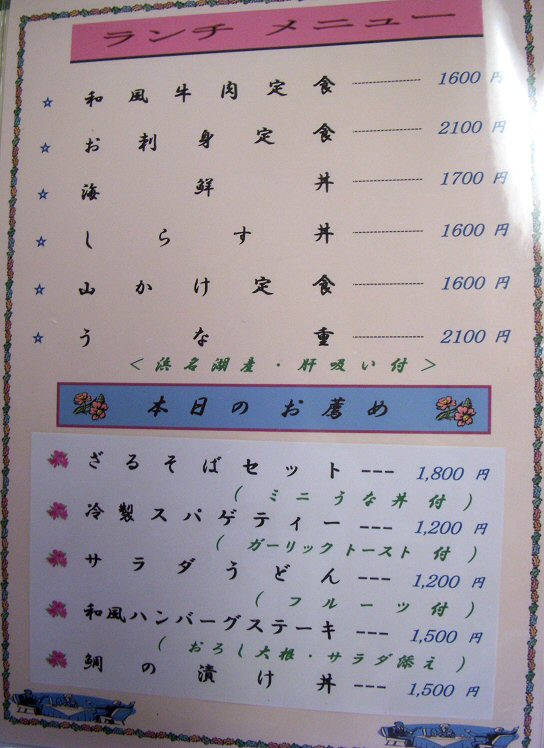 ランチ メニュー
☆ 和風牛肉定食 ---------- 1600 円
☆ お刺身定食 ---------- 2100 円
☆ 海鮮丼 ---------- 1700 円
☆ しらす丼 ---------- 1600 円
☆ 山かけ定食 ---------- 1600 円
☆ うな重 ---------- 2100 円
＜浜名湖産・肝吸い付＞
本日のお薦め
ざるそばセット --- 1,800 円
（ミニうな丼付）
冷製スパゲティー --- 1,200 円
（ガーリックトースト付）
サラダうどん --- 1,200 円
（フルーツ付）
和風ハンバーグステーキ --- 1,500 円
（おろし大根・サラダ添え）
鯛の漬け丼 --- 1,500 円